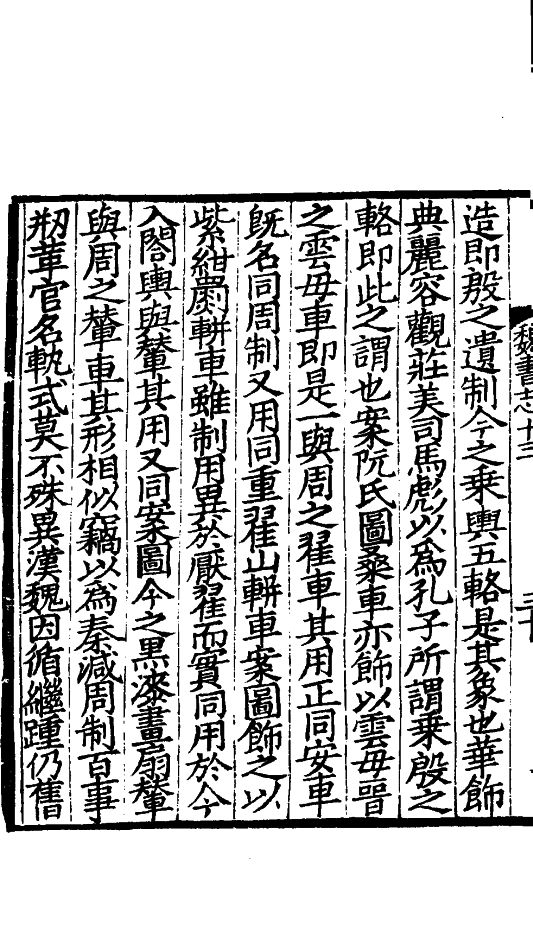 魏書志十三
三十
造即殷之遺制今之乗輿五輅是其象也華飾
典麗容觀莊美司馬彪以爲孔子所謂乗殷之
輅即此之謂也案阮氏圖桑車亦飾以雲毋晉
之雲毋車即是一與周之翟車其用正同安車
既名同周制又用同重翟山軿車案圖飾之以
紫紺罽軿車雖制用異於厭翟而實同用於今
入閤輿與輦其用又同案圖今之黒漆畫扇輦
與周之輦車其形相似竊以爲秦滅周制百事
刱革官名軌式莫不殊異漢魏因循繼踵仍舊